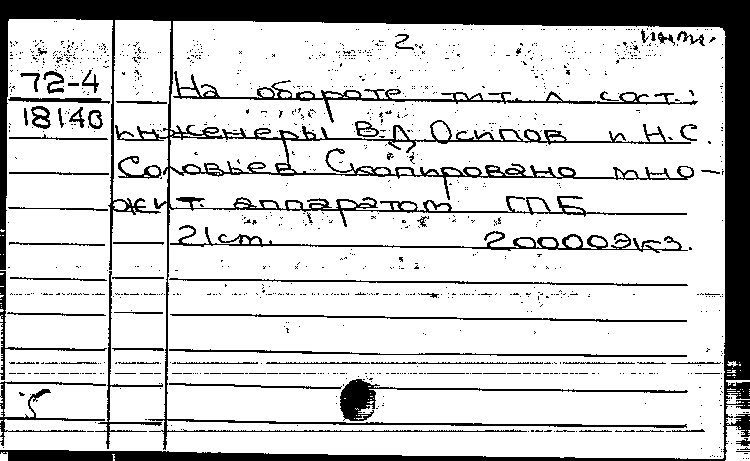 2
72-4
18140
На обороте тит. л сост.:
инженеры В.Л. Осипов и Н.С.
Соловьев. Скопировано мно-
жит. аппаратом ГПБ
21 cm. 20000экз.